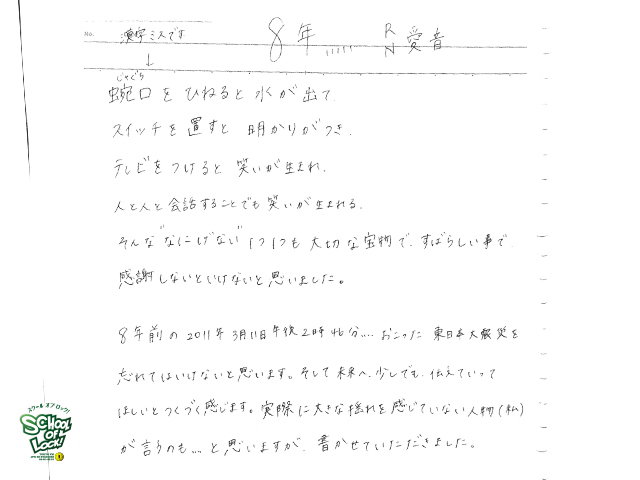 No. 漢字ミスです 8年..... RN 愛音
↓
じゃぐち
蛇口をひねると水が出て、
スイッチを置すと明かりがつき、
テレビをつけると笑いが生まれ、
人と人と会話することでも笑いが生まれる。
そんな"なにげない"1つ1つも大切な宝物で、すばらしい事で、
感謝しないといけないと思いました。
8年前の2011年3月11日午後2時46分.... おこった東日本大震災を
忘れてはいけないと思います。そして未来へ、少しでも、伝えていって
ほしいとつくづく感じます。実際に大きな揺れを感じていない人物(私)
が言うのも...と思いますが、書かせていただきました。
スクール オブ ロック!
SCHOOL OF LOCK!